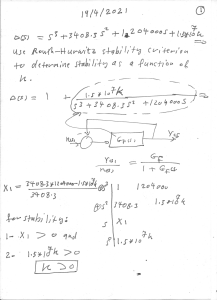 19/4/2021 ①
Δ(s) = s³ + 3408.3 s² + 1204000 s + 1.5*10⁷k
Use Routh-Hurwitz stability criterion
to determine stability as a function of
k.
Δ(s) = 1 + 1.5*10⁷k
s³ + 3408.3s² + 1204000s
G
Y(s)
Y(s) = G
1 + G
X1 = 3408.3*1204000 - 1.5*10⁷k
3408.3
s³ 1 1204000
s² 3408.3 1.5*10⁷k
s X1
s⁰ 1.5*10⁷k
for stability:
1- X1 > 0 and
2- 1.5*10⁷k > 0
k > 0